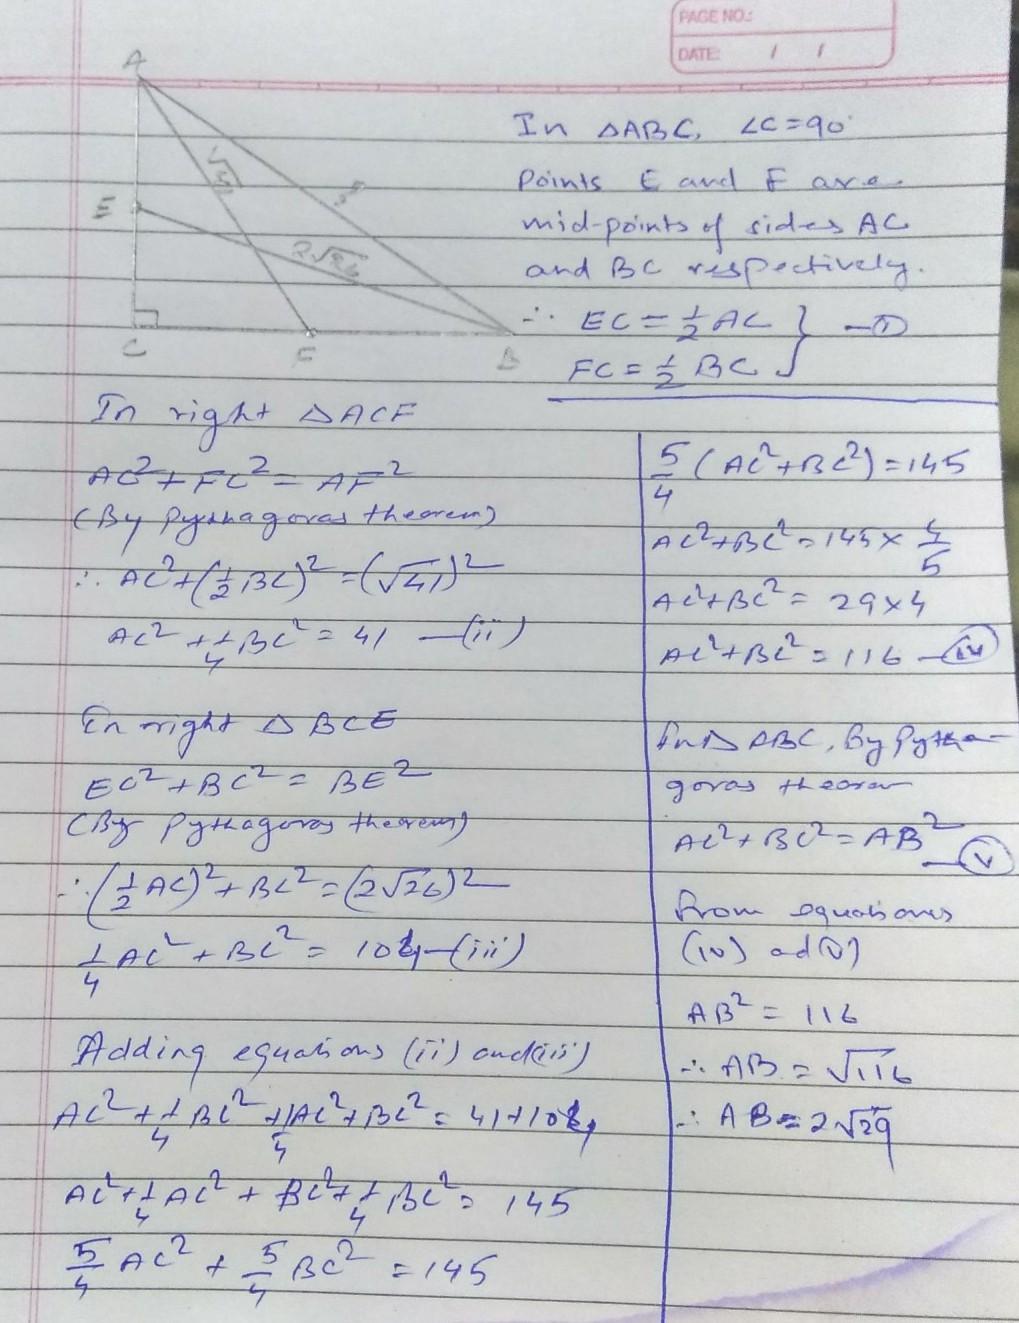 PAGE NO.:
DATE: / /
A
E
C
F
B
√41
2√26
?
In △ABC, ∠C=90°
Points E and F are
mid-points of sides AC
and BC respectively.
∴ EC = 1/2 AC } —(I)
FC = 1/2 BC
In right △ACF
AC² + FC² = AF²
(By Pythagoras theorem)
∴ AC² + (1/2 BC)² = (√41)²
AC² + 1/4 BC² = 41 —(ii)
In right △ BCE
EC² + BC² = BE²
(By Pythagoras theorem)
∴ (1/2 AC)² + BC² = (2√26)²
1/4 AC² + BC² = 104 —(iii)
Adding equations (ii) and (iii)
AC² + 1/4 BC² + 1/4 AC² + BC² = 41+104
AC² + 1/4 AC² + BC² + 1/4 BC² = 145
5/4 AC² + 5/4 BC² = 145
5/4 (AC² + BC²) = 145
AC² + BC² = 145 × 4/5
AC² + BC² = 29×4
AC² + BC² = 116 —(iv)
In △ ABC, By Pytha-
goras theorem
AC² + BC² = AB²
—(v)
From equations
(iv) ad (v)
AB² = 116
∴ AB = √116
∴ AB = 2√29